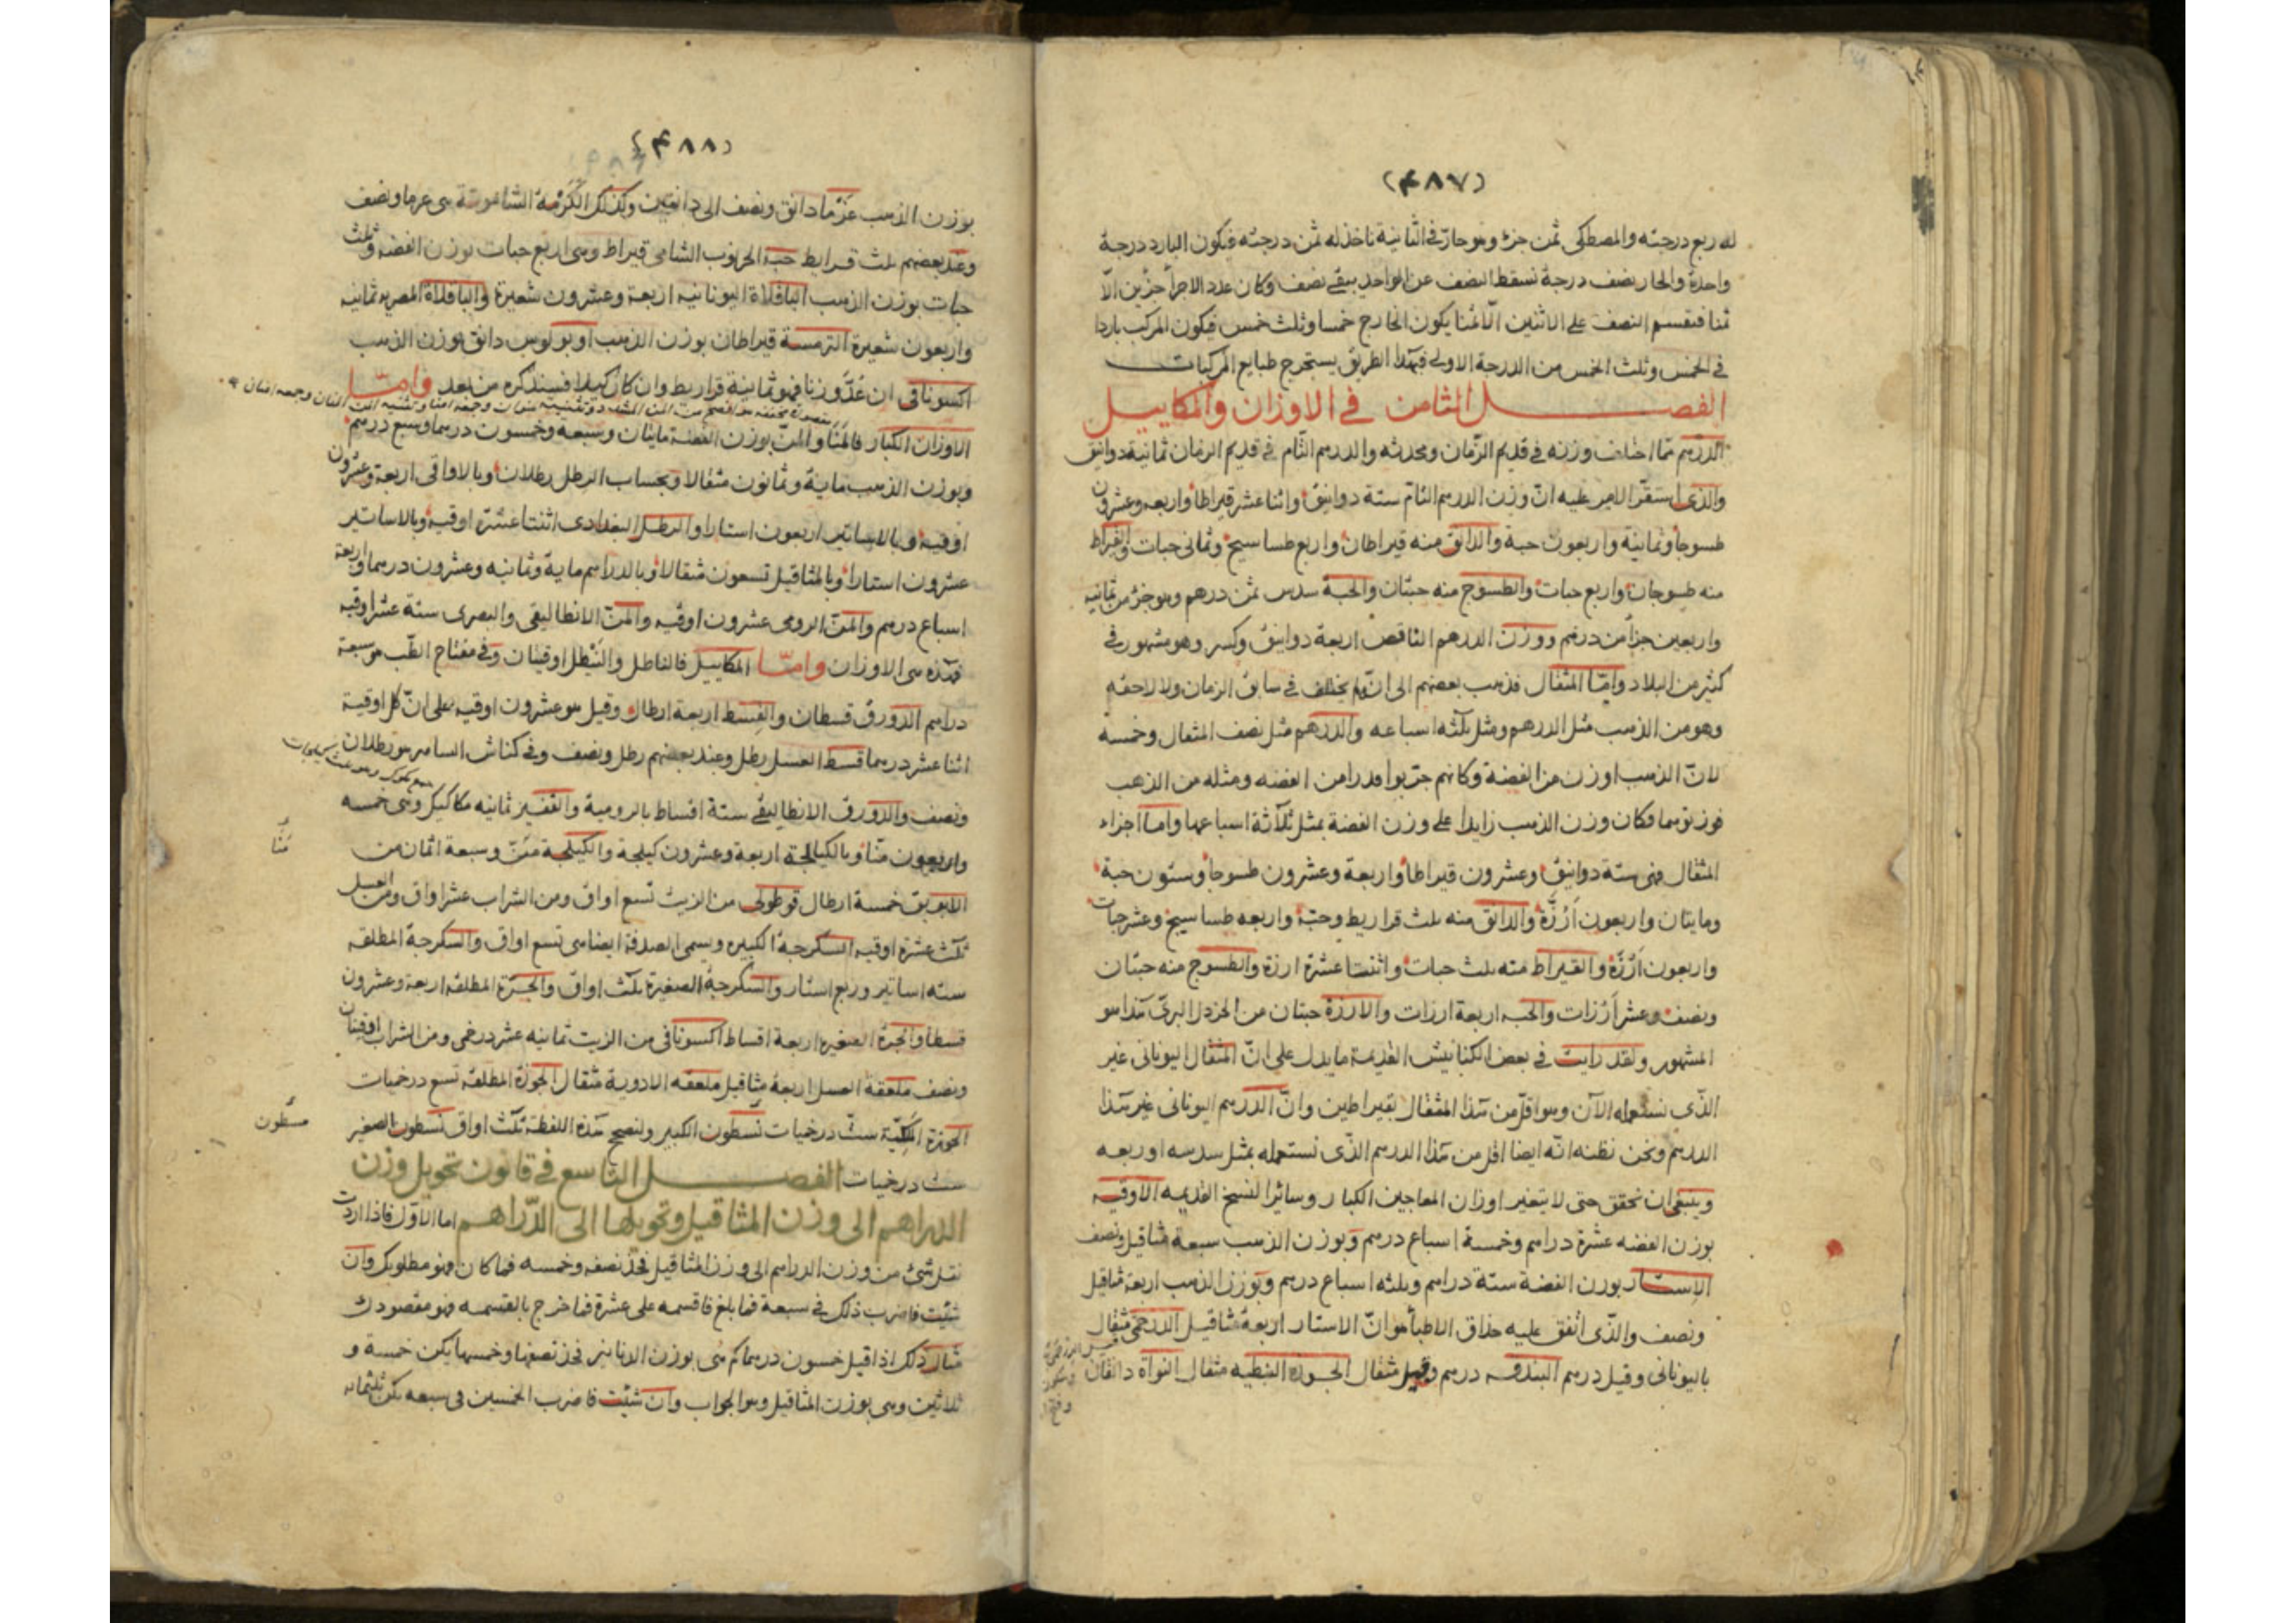 (٤٨٧)
له ربع درجته والمصطكى ثمن جزء وهو حارّ في الثانية ناخذ له ثمن درجته فيكون البارد درجة
واحدة والحار نصف درجة نسقط النصف عن الواحد يبقى نصف وكان عدد الاجزأ جزئين الّا
ثمنا فنقسم النصف على الاثنين الّا ثمنا يكون الخارج خمسا وثلث خمس فيكون المركب باردا
في الخمس وثلث الخمس من الدرجة الاولى فبهذا الطريق يستخرج طبايع المركبات
الفصل الثامن في الاوزان والمكاييل
الدرهم ممّا اختلف وزنه في قديم الزمان ومحدثه والدرهم التّام في قديم الزمان ثمانية دوانيق
والذى استقرّ الامر عليه انّ وزن الدرهم التامّ ستة دوانيق واثنا عشر قيراطا واربعه وعشرون
طسوجا وثمانية واربعون حبة والدانق منه قيراطان واربع طساسيج وثمانى حبات والقيراط
منه طسوجان واربع حبات والطسوج منه حبتان والحبة سدس ثمن درهم وهو جزء من ثمانيه
واربعين جزأ من درهم ووزن الدرهم الناقص اربعة دوانيق وكسر وهو مشهور في
كثير من البلاد وامّا المثقال فذهب بعضهم الى انّه لم يختلف في سابق الزمان ولا لاحقه
وهو من الذهب مثل الدرهم ومثل ثلثه اسباعه والدرهم مثل نصف المثقال وخمسه
لانّ الذهب اوزن من الفضة وكانهم جرّبوا قدرا من الفضه ومثله من الذهب
فوزنوهما فكان وزن الذهب زايدا على وزن الفضة بمثل ثلاثة اسباعها واما اجزاء
المثقال فهى ستة دوانيق وعشرون قيراطا واربعة وعشرون طسوجا وستون حبة
ومايتان واربعون اَرُزّة والدانق منه ثلث قراريط وحبّة واربعه طساسيج وعشر حبات
واربعون اَرُزّة والقيراط منه ثلث حبات واثنتا عشرة ارزة والطسوج منه حبتان
ونصف وعشر اَرُزات والحبه اربعة ارزات والارزة حبتان من الخردل البرىّ هذا هو
المشهور ولقد رايت في بعض الكنانيش القديمة ما يدل على انّ المثقال اليونانى غير
الذى نستعمله الآن وهو اقلّ من هذا المثقال بقيراطين وانّ الدرهم اليونانى غير هذا
الدرهم ونحن نظنه انّه ايضا اقل من هذا الدرهم الذى نستعمله بمثل سدسه او ربعه
وينبغى ان تحقق حتى لا يتغير اوزان المعاجين الكبار وسائر النسخ القديمه الاوقيه
بوزن الفضه عشرة دراهم وخمسة اسباع درهم وبوزن الذهب سبعة مثاقيل ونصف
الاستار بوزن الفضة ستة دراهم وثلثه اسباع درهم وبوزن الذهب اربعة مثاقيل
ونصف والذى اتفق عليه حذاق الاطبأ هو انّ الاستار اربعة مثاقيل الدرخمى مثقال
باليونانى وقيل درهم البندقه درهم وقيل مثقال الجوزه النبطيه مثقال النواة دانقان
(٤٨٨)
بوزن الذهب غرما دانق ونصف الى دانقين وكذلك الكَرْمة الشاموسة هى غرما ونصف
وعند بعضهم ثلث قراريط حبة الخرنوب الشامى قيراط وهى اربع حبات بوزن الفضه وثلث
حبات بوزن الذهب الباقلاة اليونانيه اربعة وعشرون شعيرة والباقلاة المصريه ثمانيه
واربعون شعيرة الترمسة قيراطان بوزن الذهب اوبولوس دانق بوزن الذهب
اكسونافى ان عُدّ وزنا فهو ثمانية قراريط وان كان كيلا فسنذكره من بعد وامّا
الاوزان الكبار فالمَنا والمنّ بوزن الفضة مايتان وسبعه وخمسون درهما وسبع درهم
وبوزن الذهب ماية وثمانون مثقالا وبحساب الرطل رطلان وبالاواقى اربعة وعشرون
اوقيه وبالاساتير اربعون استارا والرطل البغدادى اثنتا عشرة اوقيه وبالاساتير
عشرون استارا وبالمثاقيل تسعون مثقالا وبالدراهم ماية وثمانيه وعشرون درهما واربعة
اسباع درهم والمنّ الرومى عشرون اوقيه والمنّ الانطاليقى والبصرى ستة عشر اوقيه
فهذه هى الاوزان وامّا المكاييل فالناطل والنَّيْطل اوقيتان وفي مفتاح الطب هو سبعة
دراهم الدورق قسطان والقسط اربعة ارطال وقيل هو عشرون اوقيه على انّ كل اوقية
اثنا عشر درهما قسط العسل رطل وعند بعضهم رطل ونصف وفي كناش الساهر هو رطلان
ونصف والدورق الانطاليقى ستة اقساط بالرومية والقفيز ثمانيه مكاكيك وهى خمسه
واربعون منّا وبالكيالجة اربعة وعشرون كيلجة والكيلجة مَنّ وسبعة اثمان من
الابريق خمسة ارطال قوطولى من الزيت تسع اواق ومن الشراب عشر اواق ومن العسل
ثلث عشرة اوقيه السكرجة الكبيره ويسمى الصدفة ايضا هى تسع اواق والسكرجة المطلقه
سته اساتير وربع استار والسكرجة الصغيرة ثلث اواق والجرّة المطلقه اربعه وعشرون
قسطا والجرة الصغيره اربعة اقساط اكسونافى من الزيت ثمانيه عشر درخمى ومن الشراب اوقيتان
ونصف ملعقة العسل اربعة مثاقيل ملعقه الادوية مثقال الجوزة المطلقه تسع درخميات
الجوزة الملكيّة ستّ درخميات نسطون الكبير ولنصحح هذه اللفظة ثلث اواق نسطون الصغير
مسطون
ست درخميات الفصل التاسع في قانون تحويل وزن
الدراهم الى وزن المثاقيل وتحويلها الى الدّراهم اما الاوّل فاذا اردت
نقل شئ من وزن الدراهم الى وزن المثاقيل فخذ نصفه وخمسه فما كان فهو مطلوبك وان
شئت فاضرب ذلك في سبعة فما بلغ فاقسمه على عشرة فما خرج بالقسمه فهو مقصودك
مثال ذلك اذا قيل خمسون درهما كم هى بوزن الدنانير فخذ نصفها وخمسها يكن خمسة و
ثلاثين وهى بوزن المثاقيل وهو الجواب وان شئت فاضرب الخمسين فى سبعه يكن ثلثمائه